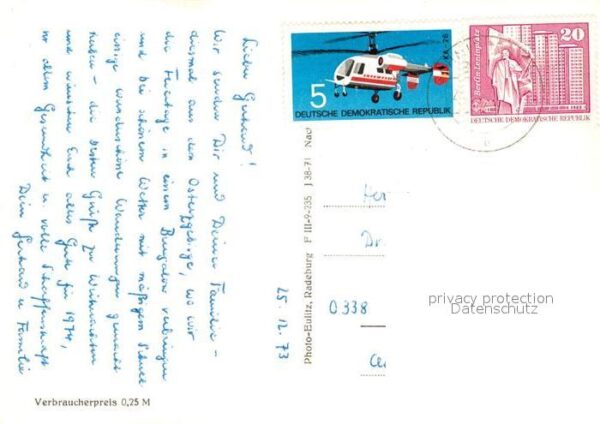 Lieber Gerhard!
Wir senden Dir und Deiner Familie –
diesmal aus dem Osterzgebirge, wo wir
die Feiertage in einem Bungalow verbringen
und bei schönem Wetter mit mäßigem Schnee
einige wunderschöne Wanderungen gemacht
haben – die besten Grüße zu Weihnachten
und wünschen Euch alles Gute für 1974,
vor allem Gesundheit u. volle Schaffenskraft
Dein Gerhard u. Familie
25.12.73
Verbraucherpreis 0,25 M
Photo-Eulitz, Radeburg F III-9-235 J 38-71 Nac
5
KA-26
INTERFLUG
DEUTSCHE DEMOKRATISCHE REPUBLIK
20
Berlin-Leninplatz
DEUTSCHE DEMOKRATISCHE REPUBLIK
Her
Dr.
0338
privacy protection
Datenschutz